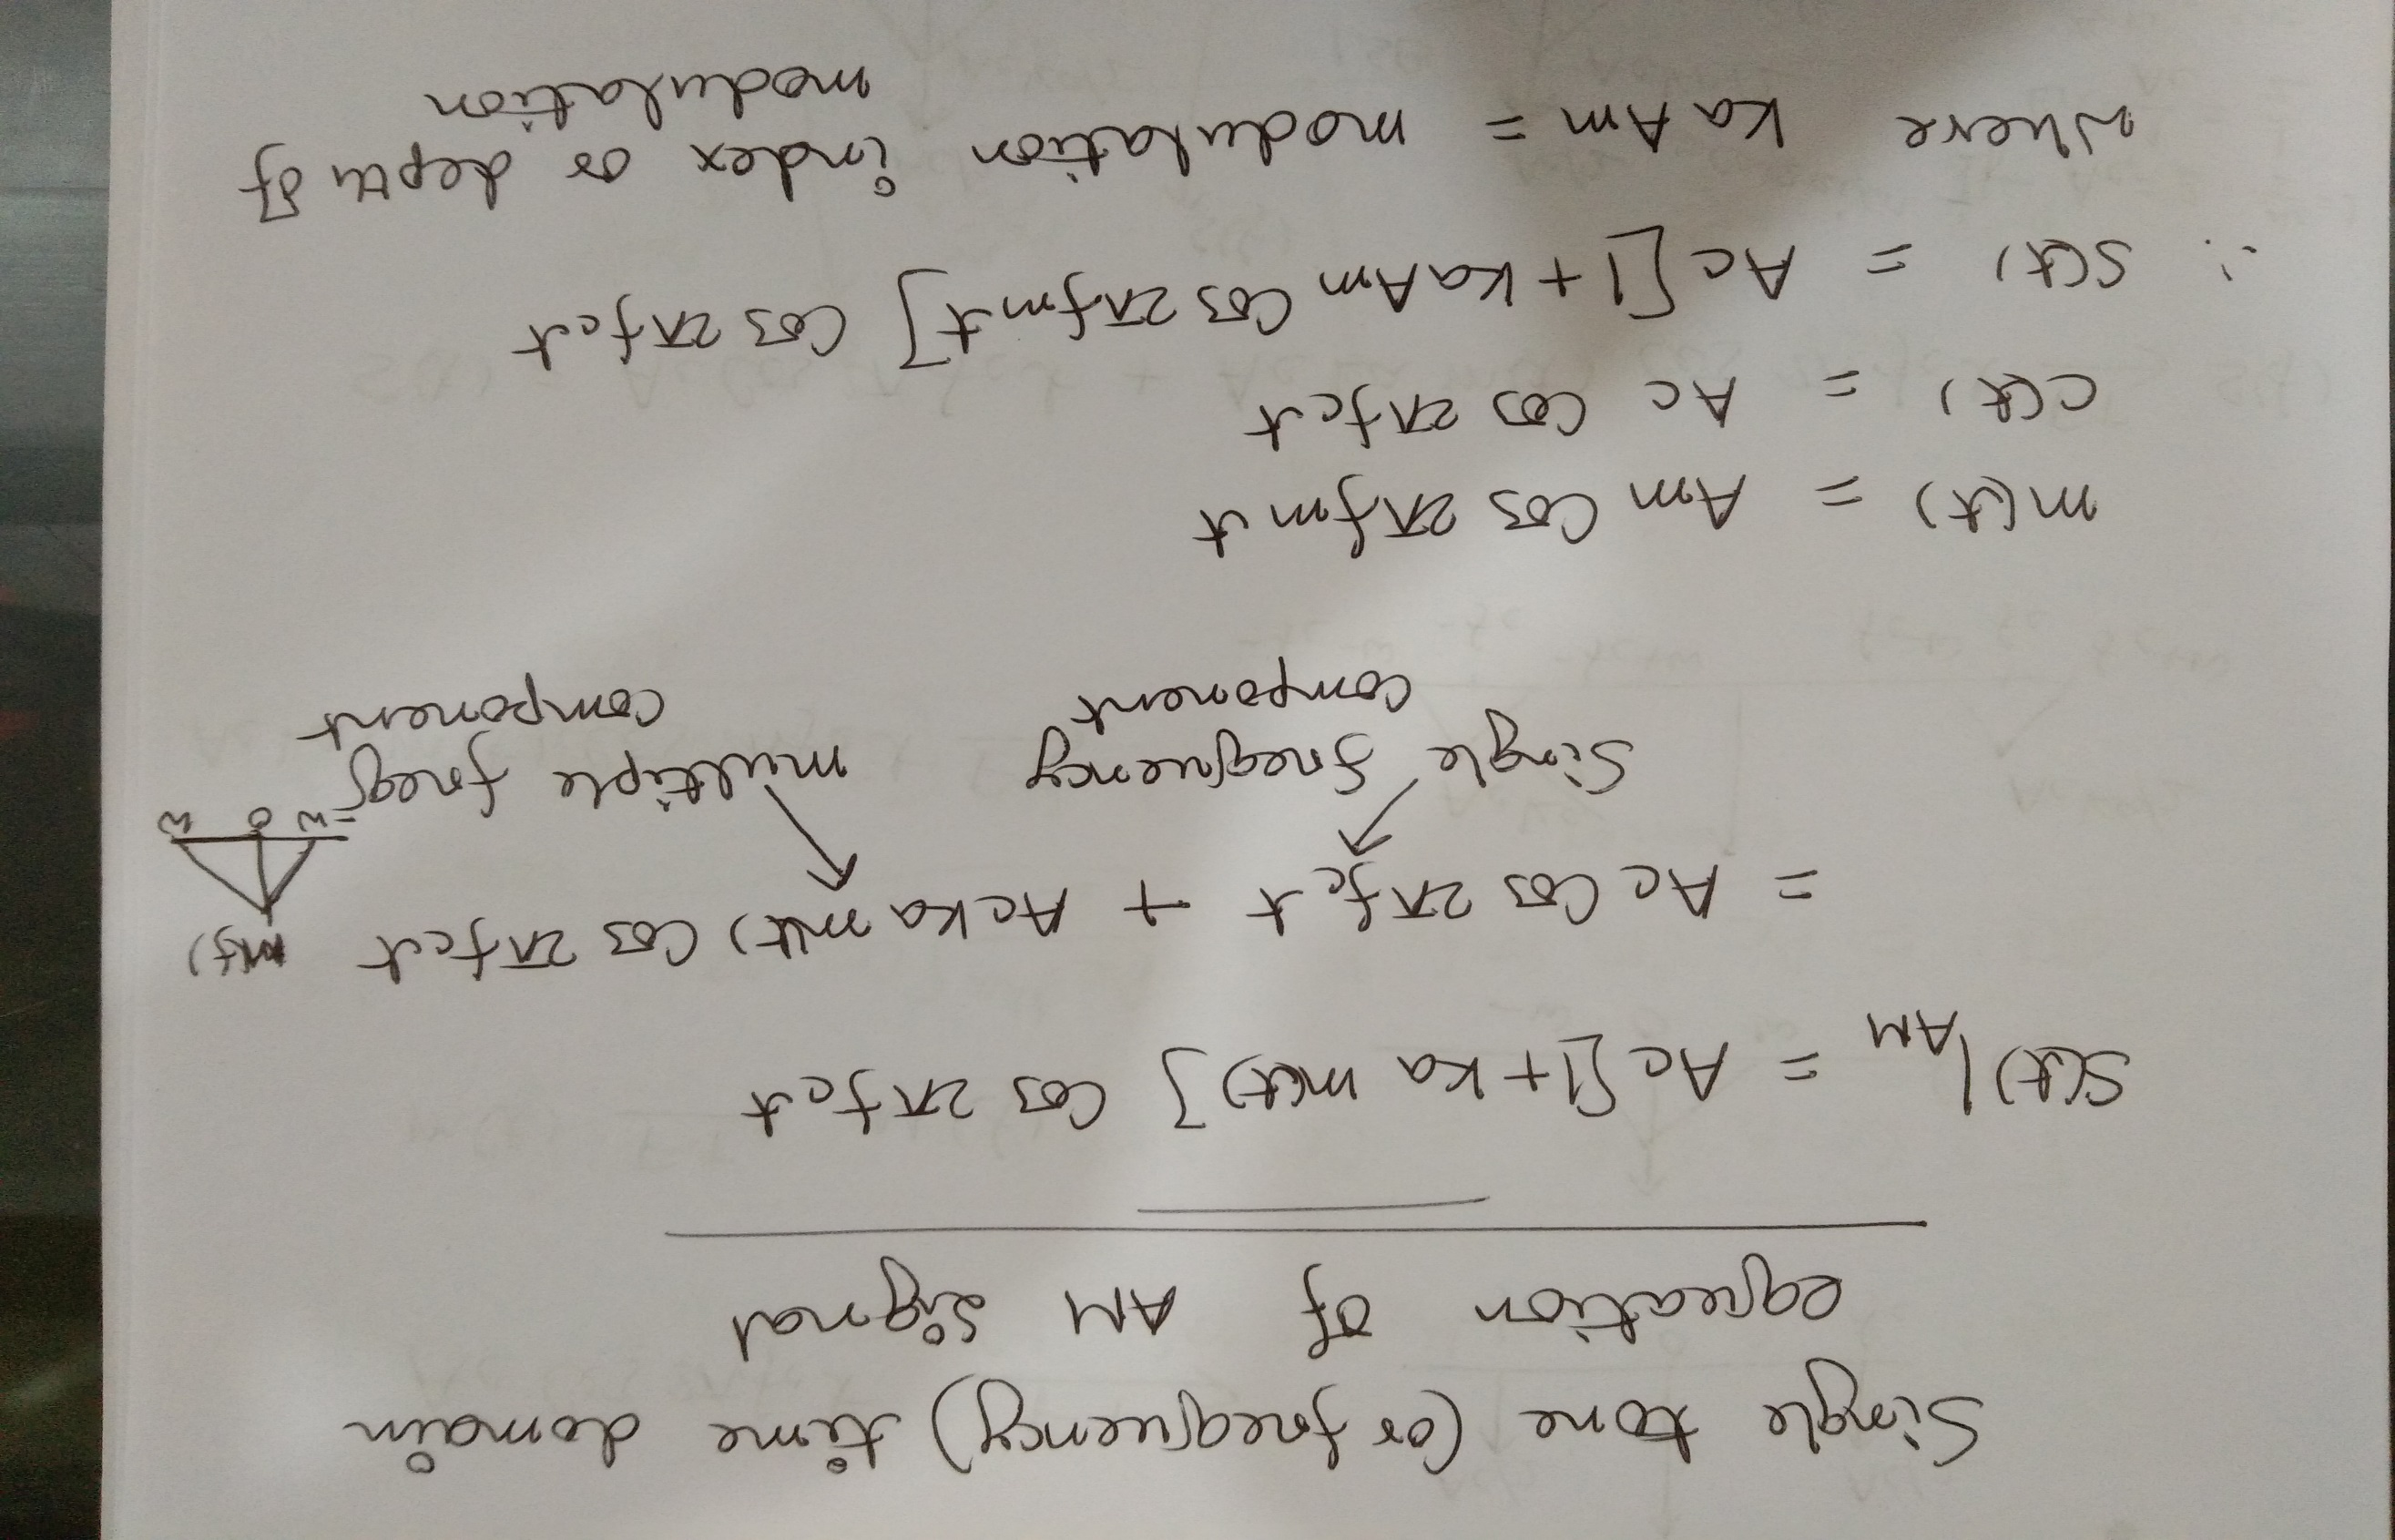 Single tone (or frequency) time domain
equation of AM signal
S(t)|AM = Ac [1 + ka m(t)] Cos 2πfct
= Ac Cos 2πfct + Acka m(t) Cos 2πfct
M(f)
-w 0 w
Single frequency component
multiple freqs component
m(t) = Am Cos 2πfmt
c(t) = Ac Cos 2πfct
∴ S(t) = Ac [1 + kaAm Cos 2πfmt] Cos 2πfct
where kaAm = modulation index or depth of
modulation